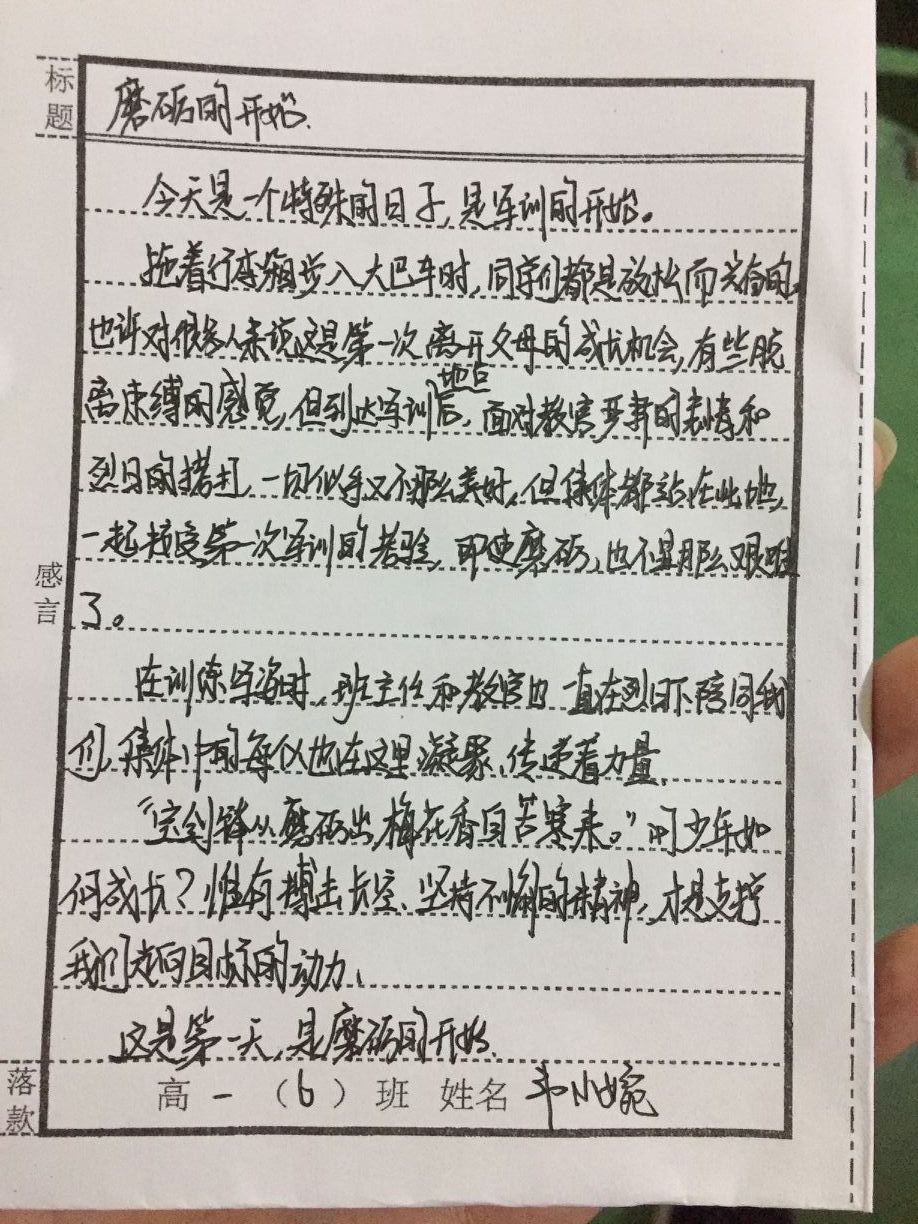 标题
磨砺的开始.
今天是一个特殊的日子,是军训的开始。
拖着行李箱步入大巴车时,同学们都是放松而兴奋的,
也许对很多人来说这是第一次离开父母的成长机会,有些脱
离束缚的感觉,但到达军训地点后,面对教官严肃的表情和
烈日的拷打,一切似乎又不那么美好,但集体都站在此地,
一起接受第一次军训的考验,即使磨砺,也不是那么艰难
了。
感言
在训练军姿时,班主任和教官也一直在烈日下陪同我
们,集体中的每位也在这里凝聚、传递着力量.
“宝剑锋从磨砺出,梅花香自苦寒来。”问少年如
何成长?惟有搏击长空、坚持不懈的精神,才是支撑
我们走向目标的动力.
这是第一天,是磨砺的开始.
落款
高一(6)班 姓名 韦小婉